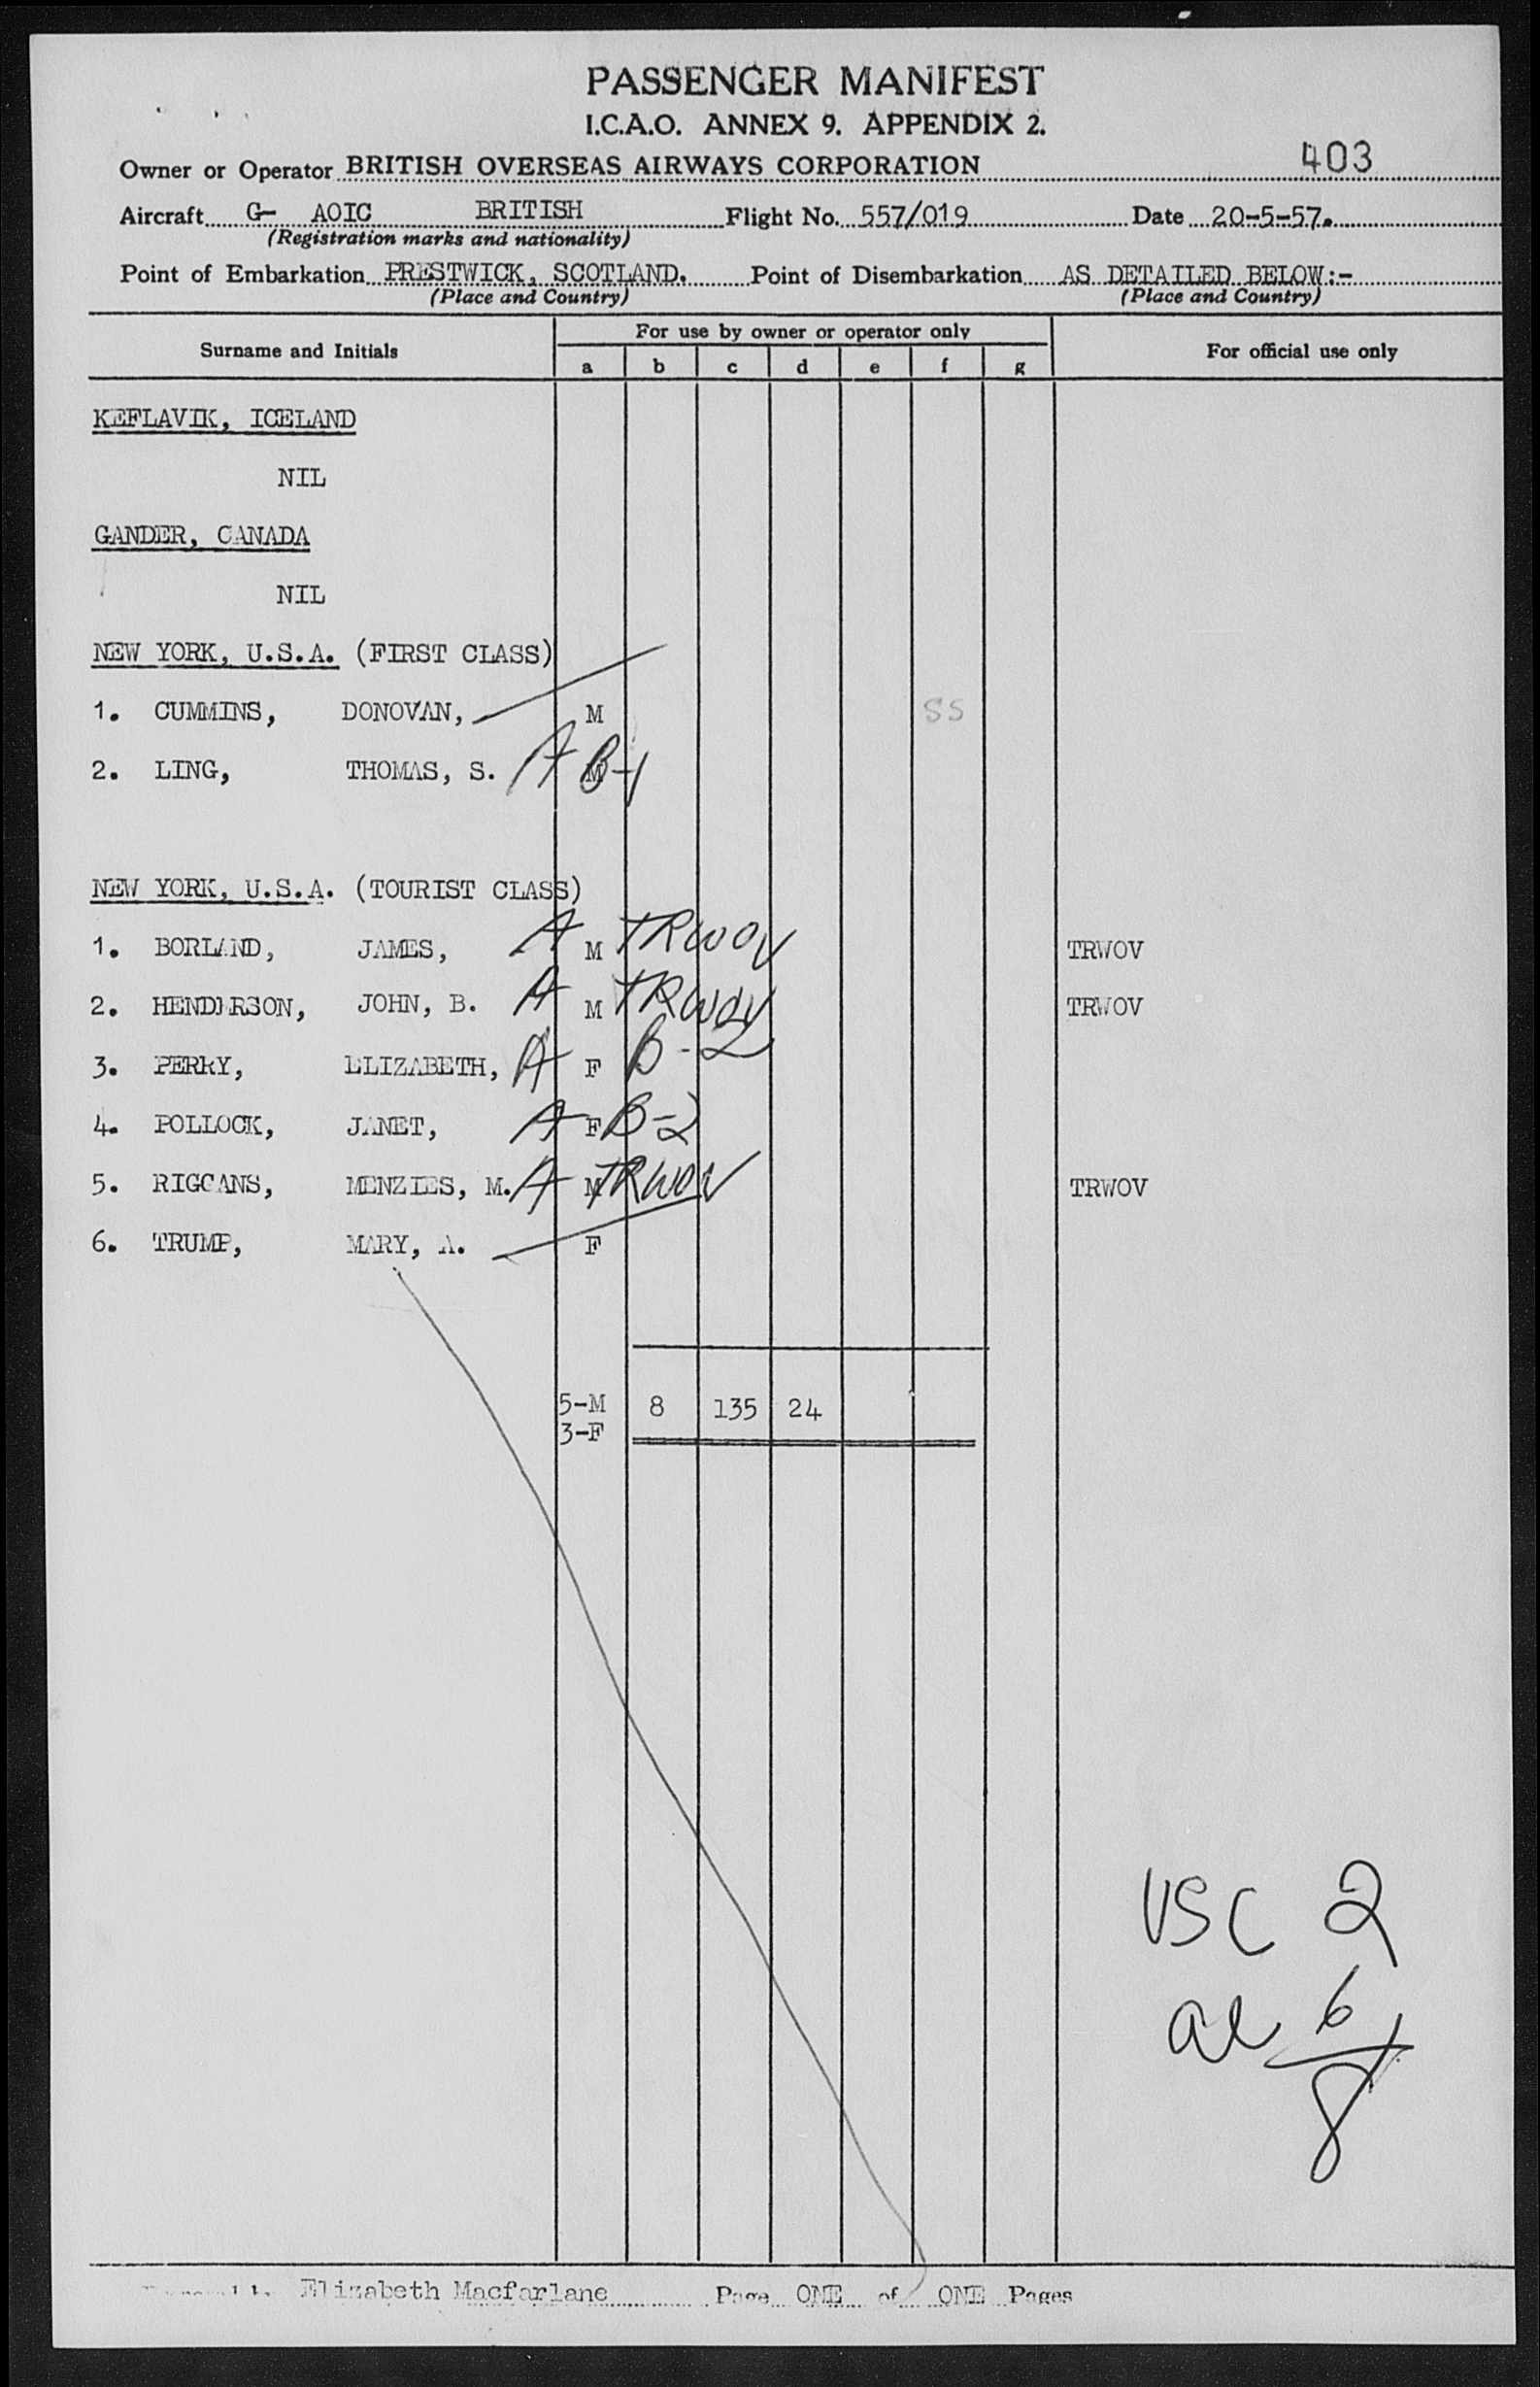 PASSENGER MANIFEST
I.C.A.O. ANNEX 9. APPENDIX 2.
403
Owner or Operator BRITISH OVERSEAS AIRWAYS CORPORATION
Aircraft G- AOIC BRITISH Flight No. 557/019 Date 20-5-57.
(Registration marks and nationality)
Point of Embarkation PRESTWICK, SCOTLAND. Point of Disembarkation AS DETAILED BELOW:-
(Place and Country) (Place and Country)
Surname and Initials For use by owner or operator only For official use only
a b c d e f g
KEFLAVIK, ICELAND
NIL
GANDER, CANADA
NIL
NEW YORK, U.S.A. (FIRST CLASS)
1. CUMMINS, DONOVAN, M SS
2. LING, THOMAS, S. A M B-1
NEW YORK, U.S.A. (TOURIST CLASS)
1. BORLAND, JAMES, A M TRWOV TRWOV
2. HENDERSON, JOHN, B. A M TRWOV TRWOV
3. PERRY, ELIZABETH, A F B-2
4. POLLOCK, JANET, A F B-2
5. RIGGANS, MENZIES, M. A M TRWOV TRWOV
6. TRUMP, MARY, A. F
5-M 8 135 24
3-F
USC 2
al 6
8
Elizabeth Macfarlane Page ONE of ONE Pages